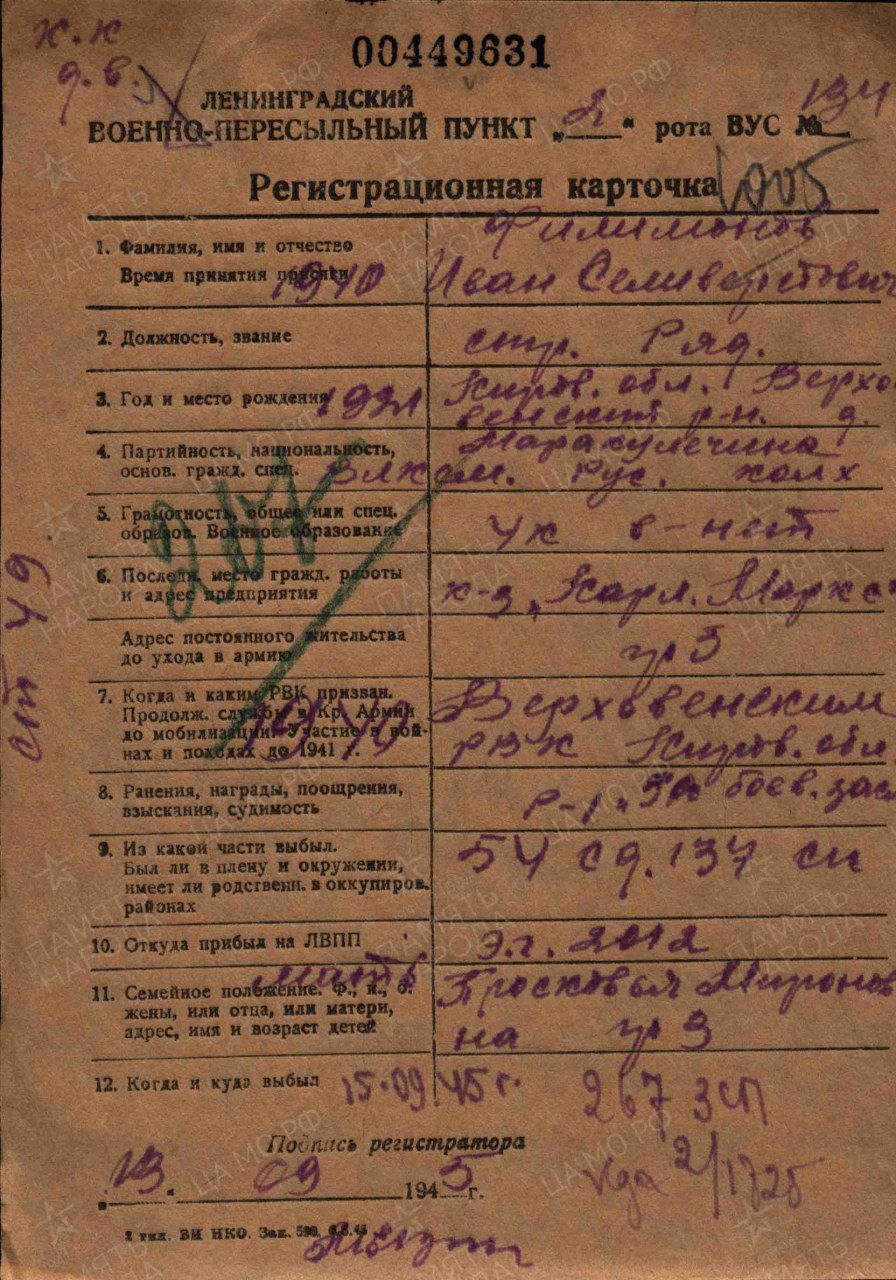 к.к
00449631
д.в.
ЛЕНИНГРАДСКИЙ
ВОЕННО-ПЕРЕСЫЛЬНЫЙ ПУНКТ „2“ рота ВУС № 134
Регистрационная карточка
1. Фамилия, имя и отчество Филимонов
Время принятия присяги 1940 Иван Селиверстович
2. Должность, звание стр. Ряд.
3. Год и место рождения 1921 Киров. обл. Верхо
венский р-н. д.
4. Партийность, национальность, Маракулечина
основ. гражд. спец. Влксм. Рус. колх
5. Грамотность, общее или спец.
образов. Военное образование 4к в-нет
6. Последн. место гражд. работы
и адрес предприятия к-з „Карл. Маркс“
Адрес постоянного жительства
до ухода в армию гр 3
7. Когда и каким РВК призван. Верховенским
Продолж. службы в Кр. Армии
до мобилизации. Участие в вой- 1940 РВК Киров. обл.
нах и походах до 1941 г.
8. Ранения, награды, поощрения, боев. зас
взыскания, судимость
9. Из какой части выбыл. 54 сд. 137 сп
Был ли в плену и окружении,
имеет ли родственн. в оккупиров.
районах
10. Откуда прибыл на ЛВПП э.г. 2012
11. Семейное положение. Ф., и., о. мать Просковья Миронов
жены, или отца, или матери, на гр 3
адрес, имя и возраст детей
12. Когда и куда выбыл 15.09.45 г. 267 зсп
Подпись регистратора
„13“ 09 1945 г.
2/1725
2 тип. ВИ НКО. Зак.
ст 49
ПАМЯТЬ НАРОДА
ЦА МО РФ